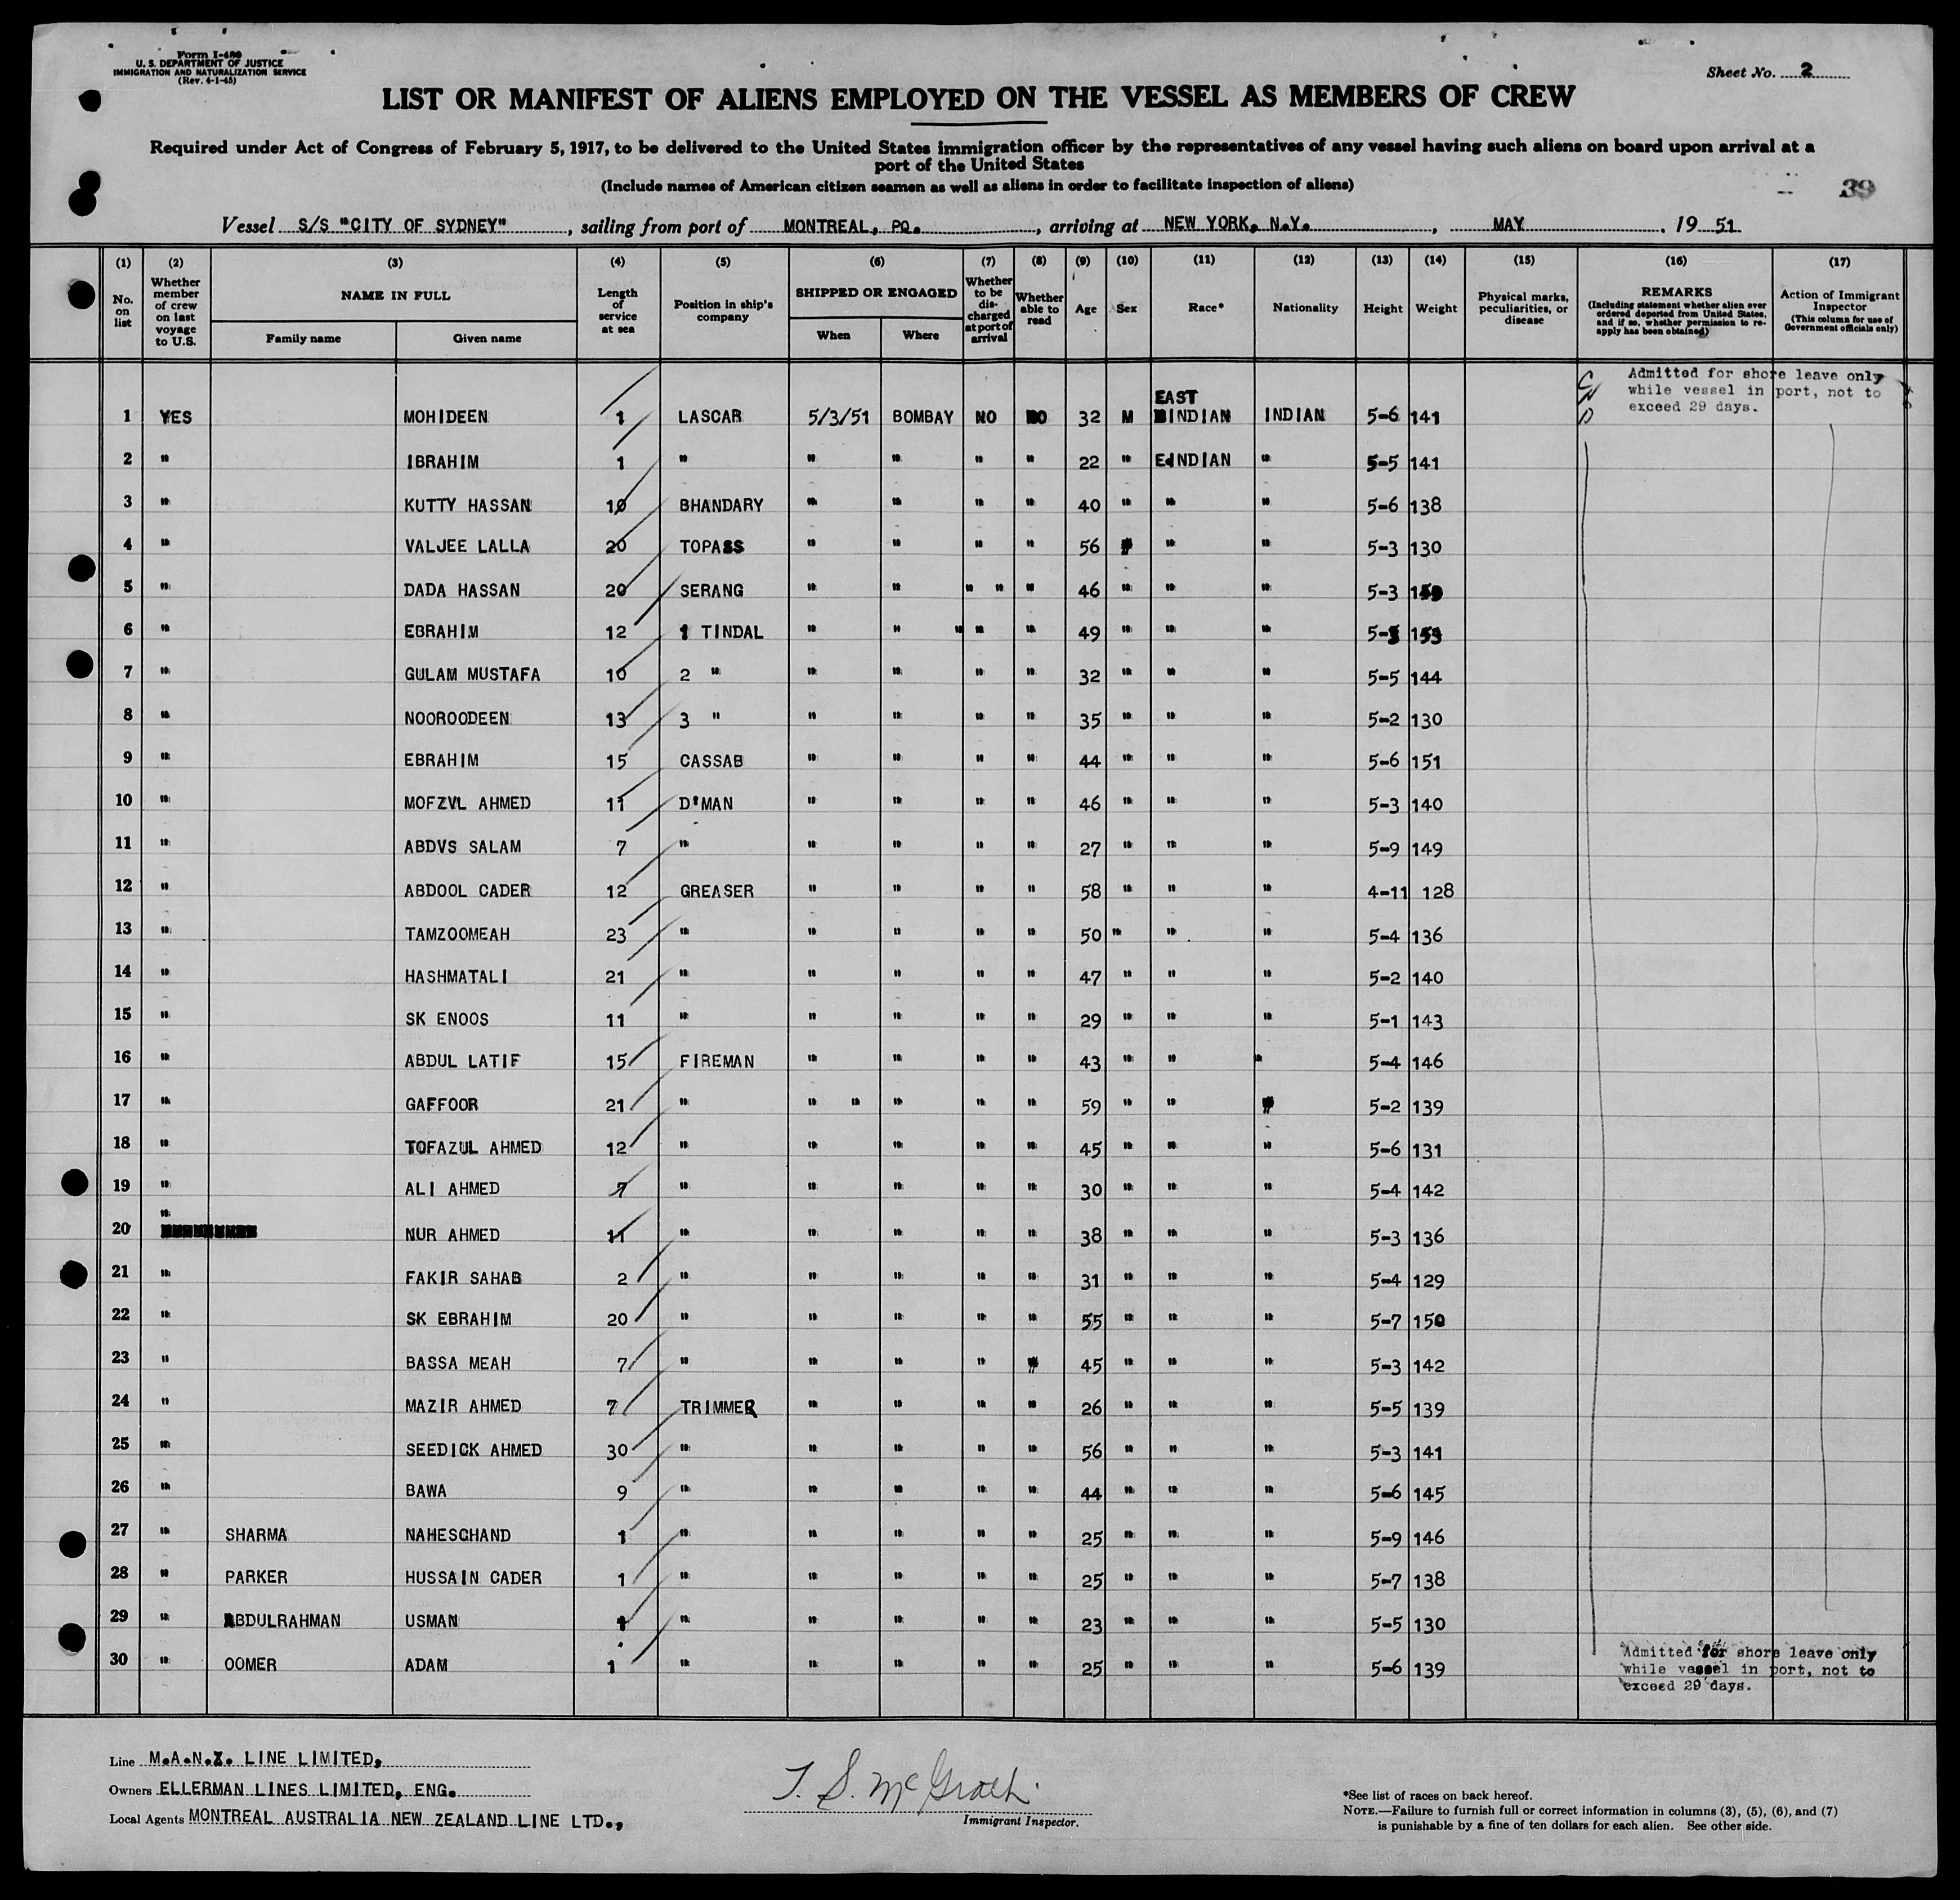 Form I-480
U. S. DEPARTMENT OF JUSTICE
IMMIGRATION AND NATURALIZATION SERVICE
(Rev. 4-1-45)
Sheet No. 2
LIST OR MANIFEST OF ALIENS EMPLOYED ON THE VESSEL AS MEMBERS OF CREW
Required under Act of Congress of February 5, 1917, to be delivered to the United States immigration officer by the representatives of any vessel having such aliens on board upon arrival at a
port of the United States
(Include names of American citizen seamen as well as aliens in order to facilitate inspection of aliens)
39
Vessel S/S "CITY OF SYDNEY", sailing from port of MONTREAL, PQ., arriving at NEW YORK, N.Y., MAY, 19 51
(1) (2) (3) (4) (5) (6) (7) (8) (9) (10) (11) (12) (13) (14) (15) (16) (17)
No. on list
Whether member of crew on last voyage to U.S.
NAME IN FULL
Family name Given name
Length of service at sea
Position in ship's company
SHIPPED OR ENGAGED
When Where
Whether to be discharged at port of arrival
Whether able to read
Age
Sex
Race*
Nationality
Height
Weight
Physical marks, peculiarities, or disease
REMARKS
(Including statement whether alien ever ordered deported from United States, and if so, whether permission to reapply has been obtained)
Action of Immigrant Inspector
(This column for use of Government officials only)
Admitted for shore leave only
while vessel in port, not to
exceed 29 days.
1 YES MOHIDEEN 1 LASCAR 5/3/51 BOMBAY NO NO 32 M EAST INDIAN INDIAN 5-6 141
2 " IBRAHIM 1 " " " " " 22 " E.INDIAN " 5-5 141
3 " KUTTY HASSAN 10 BHANDARY " " " " 40 " " " 5-6 138
4 " VALJEE LALLA 20 TOPASS " " " " 56 " " " 5-3 130
5 " DADA HASSAN 20 SERANG " " " " " 46 " " " 5-3
6 " EBRAHIM 12 1 TINDAL " " " " " 49 " " " 153
7 " GULAM MUSTAFA 10 2 " " " " " 32 " " " 5-5 144
8 " NOOROODEEN 13 3 " " " " " 35 " " " 5-2 130
9 " EBRAHIM 15 CASSAB " " " " 44 " " " 5-6 151
10 " MOFZVL AHMED 11 D'MAN " " " " 46 " " " 5-3 140
11 " ABDVS SALAM 7 " " " " " 27 " " " 5-9 149
12 " ABDOOL CADER 12 GREASER " " " " 58 " " " 4-11 128
13 " TAMZOOMEAH 23 " " " " " 50 " " " 5-4 136
14 " HASHMATALI 21 " " " " " 47 " " " 5-2 140
15 " SK ENOOS 11 " " " " " 29 " " " 5-1 143
16 " ABDUL LATIF 15 FIREMAN " " " " 43 " " " 5-4 146
17 " GAFFOOR 21 " " " " " " 59 " " " 5-2 139
18 " TOFAZUL AHMED 12 " " " " " 45 " " " 5-6 131
19 " ALI AHMED 7 " " " " " 30 " " " 5-4 142
20 " NUR AHMED 11 " " " " " 38 " " " 5-3 136
21 " FAKIR SAHAB 2 " " " " " 31 " " " 5-4 129
22 " SK EBRAHIM 20 " " " " " 55 " " " 5-7 150
23 " BASSA MEAH 7 " " " " " 45 " " " 5-3 142
24 " MAZIR AHMED 7 TRIMMER " " " " 26 " " " 5-5 139
25 " SEEDICK AHMED 30 " " " " " 56 " " " 5-3 141
26 " BAWA 9 " " " " " 44 " " " 5-6 145
27 " SHARMA NAHESCHAND 1 " " " " " 25 " " " 5-9 146
28 " PARKER HUSSAIN CADER 1 " " " " " 25 " " " 5-7 138
29 " ABDULRAHMAN USMAN 1 " " " " " 23 " " " 5-5 130
30 " OOMER ADAM 1 " " " " " 25 " " " 5-6 139
Admitted for shore leave only
while vessel in port, not to
exceed 29 days.
Line M.A.N.Z. LINE LIMITED,
Owners ELLERMAN LINES LIMITED, ENG.
Local Agents MONTREAL AUSTRALIA NEW ZEALAND LINE LTD.,
T. S. McGrath
Immigrant Inspector.
*See list of races on back hereof.
NOTE.—Failure to furnish full or correct information in columns (3), (5), (6), and (7)
is punishable by a fine of ten dollars for each alien. See other side.